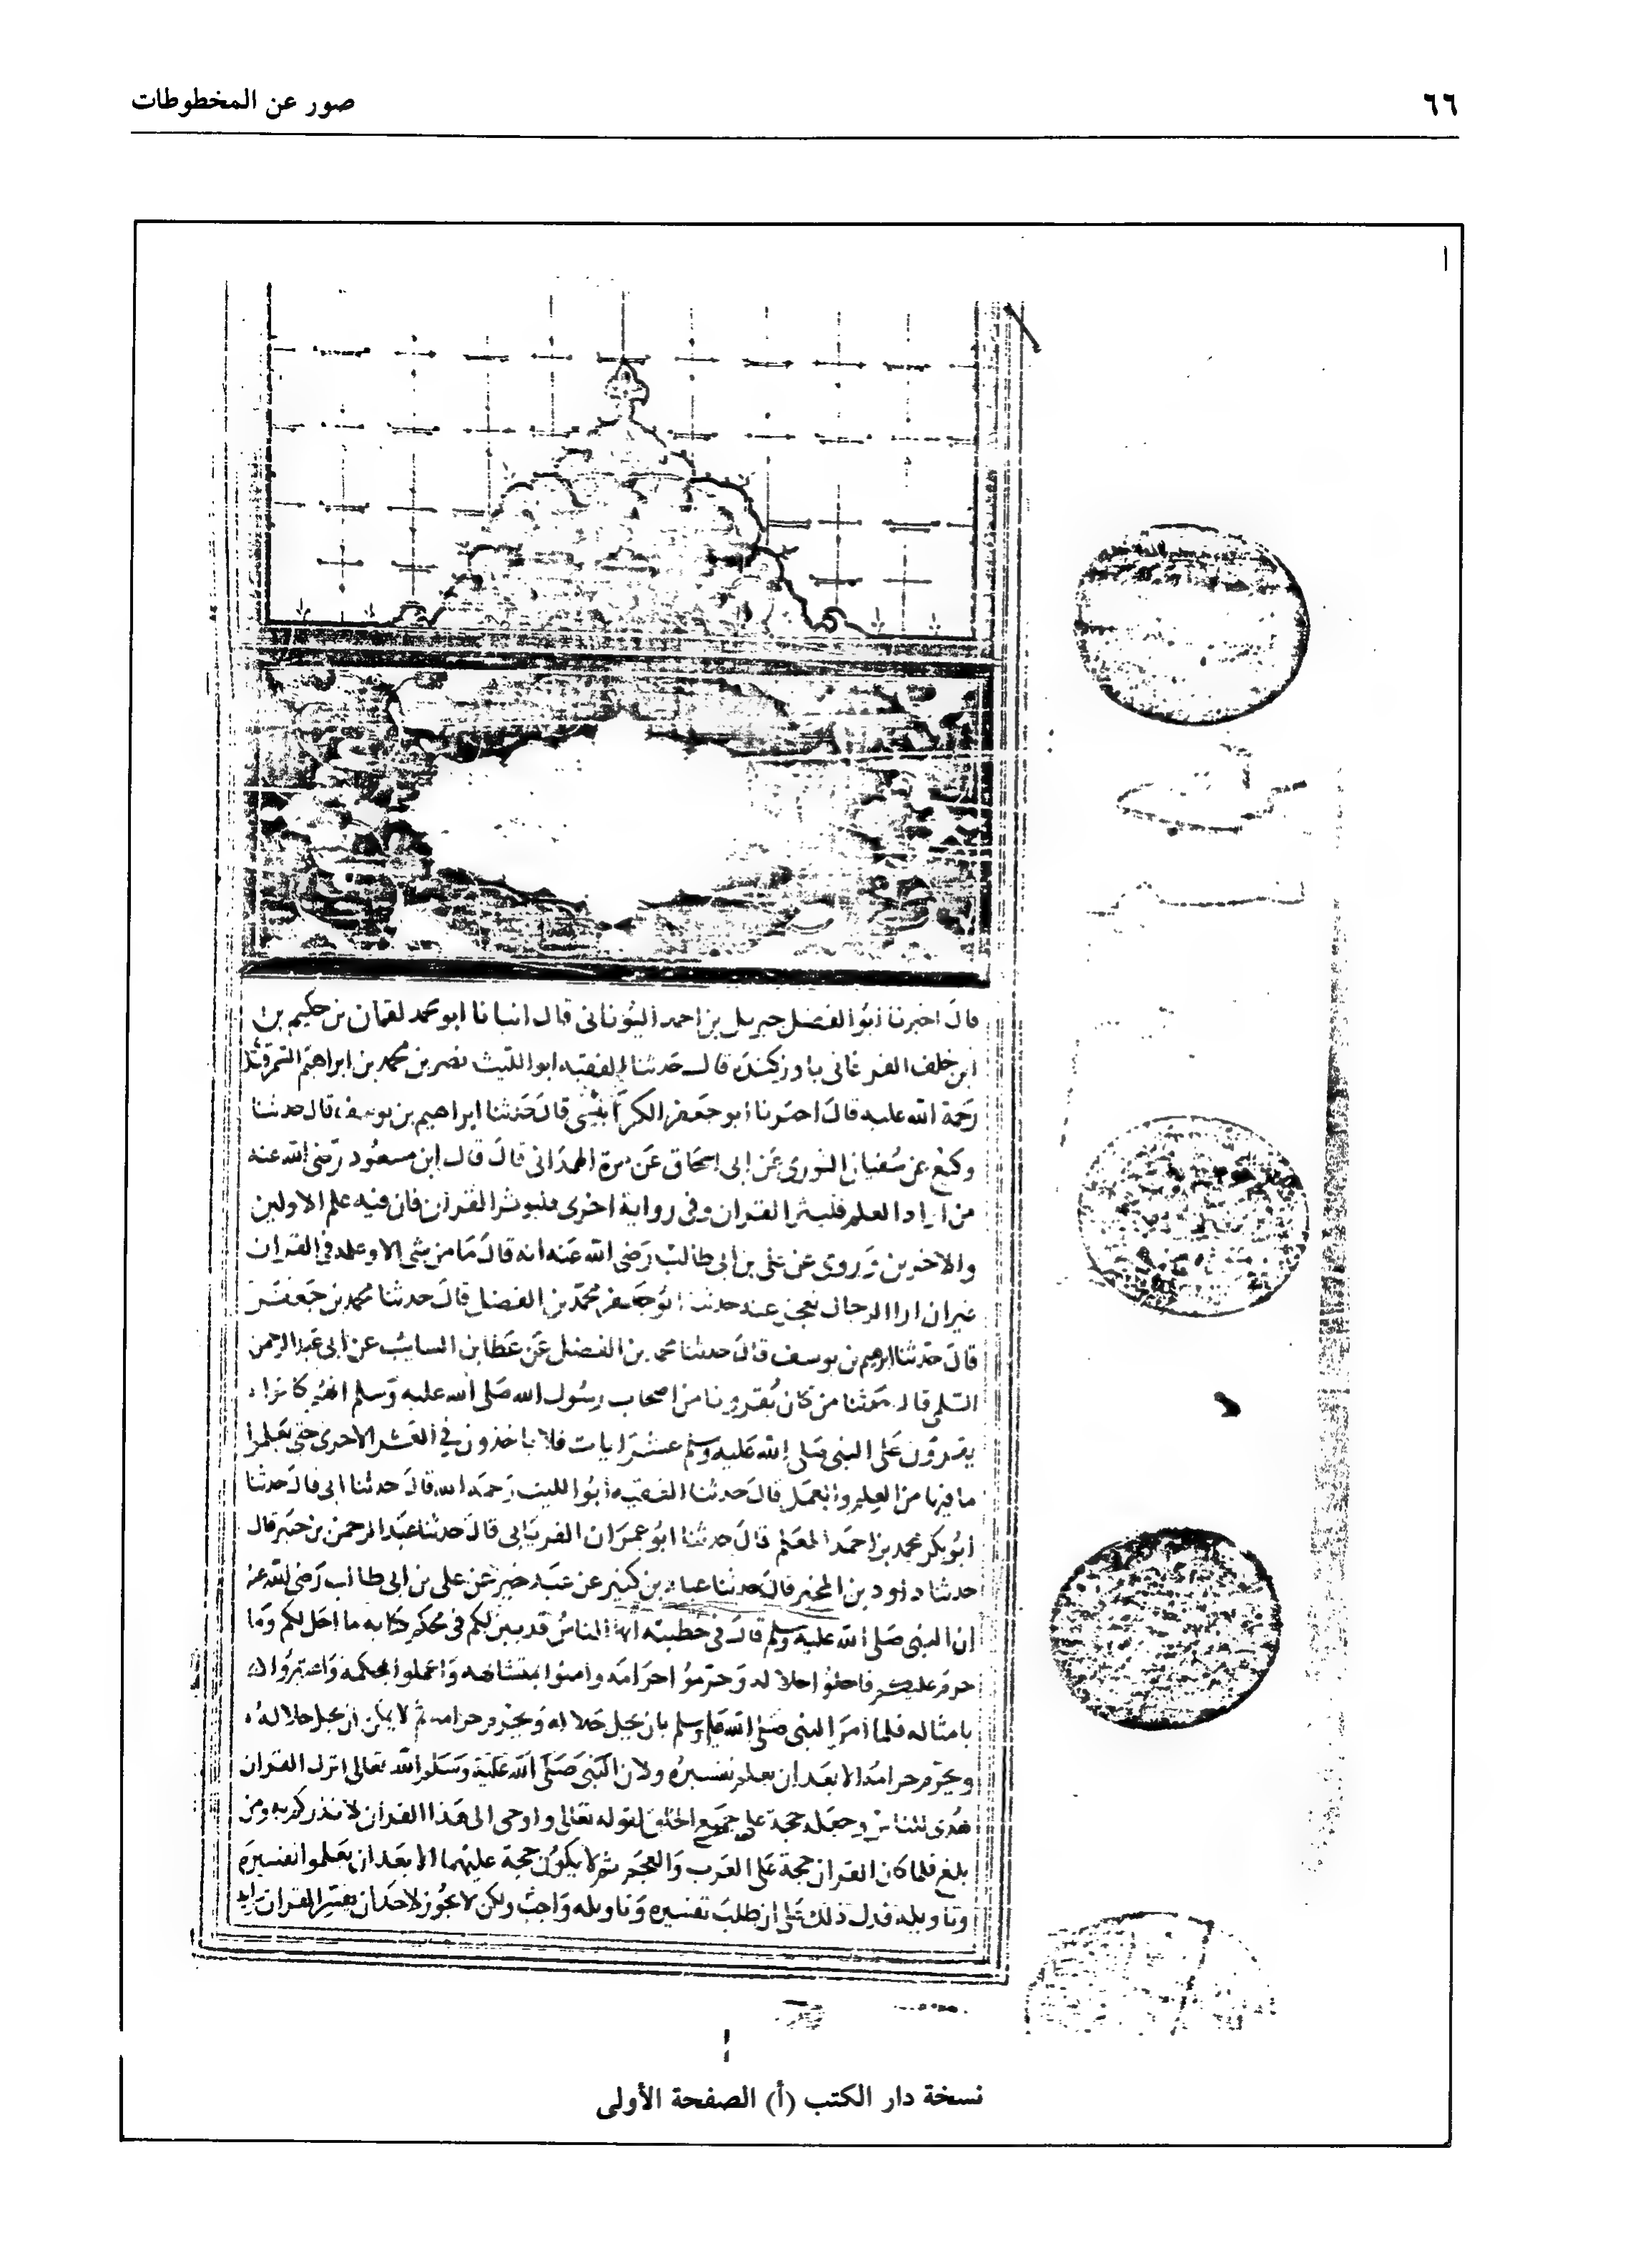 ٦٦
صور عن المخطوطات
قال اخبرنا ابو الفضل جبريل بن احمد اليوناني قال انبانا ابو محمد لقمان بن حكيم بن
ابن خلف الفرغاني باوزكندة قال حدثنا الفقيه ابو الليث نصر بن محمد بن ابراهيم السمرقندي
رحمة الله عليه قال اخبرنا ابو جعفر الكرابيسي قال حدثنا ابراهيم بن يوسف قال حدثنا
وكيع عن سفيان الثوري عن ابي اسحاق عن مرة الهمداني قال قال ابن مسعود رضي الله عنه
من اراد العلم فليثر القران وفي رواية اخرى فليوثر القران فان فيه علم الاولين
والاخرين وروى عن علي بن ابي طالب رضي الله عنه انه قال ما من شي الا وعلمه في القران
غير ان ارا الرجال تعجز عنه حدثنا ابو جعفر محمد بن الفضل قال حدثنا محمد بن جعفر
قال حدثنا ابرهيم بن يوسف قال حدثنا محمد بن الفضل عن عطا بن السايب عن ابي عبد الرحمن
السلمي قال حدثنا من كان يقرونا من اصحاب رسول الله صلى الله عليه وسلم انهم كانوا
يقرون على النبي صلى الله عليه وسلم عشر ايات فلا ياخذون في العشر الاخرى حتى يعلموا
ما فيها من العلم والعمل قال حدثنا الفقيه ابو الليث رحمه الله قال حدثنا ابي قال حدثنا
ابو بكر محمد بن احمد المعلم قال حدثنا ابو عمران الفريابي قال حدثنا عبد الرحمن بن جبر قال
حدثنا داود بن المحبر قال حدثنا عباد بن كثير عن عبد خير عن علي بن ابي طالب رضي الله عنه
ان النبي صلى الله عليه وسلم قال في خطبته ايها الناس قد بين لكم في محكم كتابه ما احل لكم وما
حرم عليكم فاحلوا حلاله وحرموا حرامه وامنوا بمتشابهه واعملوا بمحكمه واعتبروا
بامثاله فلما امر النبي صلى الله عليه وسلم بان يحل حلاله ويحرم حرامه ثم لا يمكن ان يحل حلاله
ويحرم حرامه الا بعد ان يعلم تفسيره ولان النبي صلى الله علية وسلم الله تعالى انزل القران
هدى للناس وجعله حجة على جميع الخلق لقوله تعالى واوحي الى هذا القران لانذركم به ومن
بلغ فلما كان القران حجة على العرب والعجم ثم لا يكون حجة عليهما الا بعد ان يعلموا تفسيره
وتاويله فدل ذلك على ان طلب تفسيره وتاويله واجب ولكن لا يجوز لاحد ان يفسر القران برايه
نسخة دار الكتب (أ) الصفحة الأولى